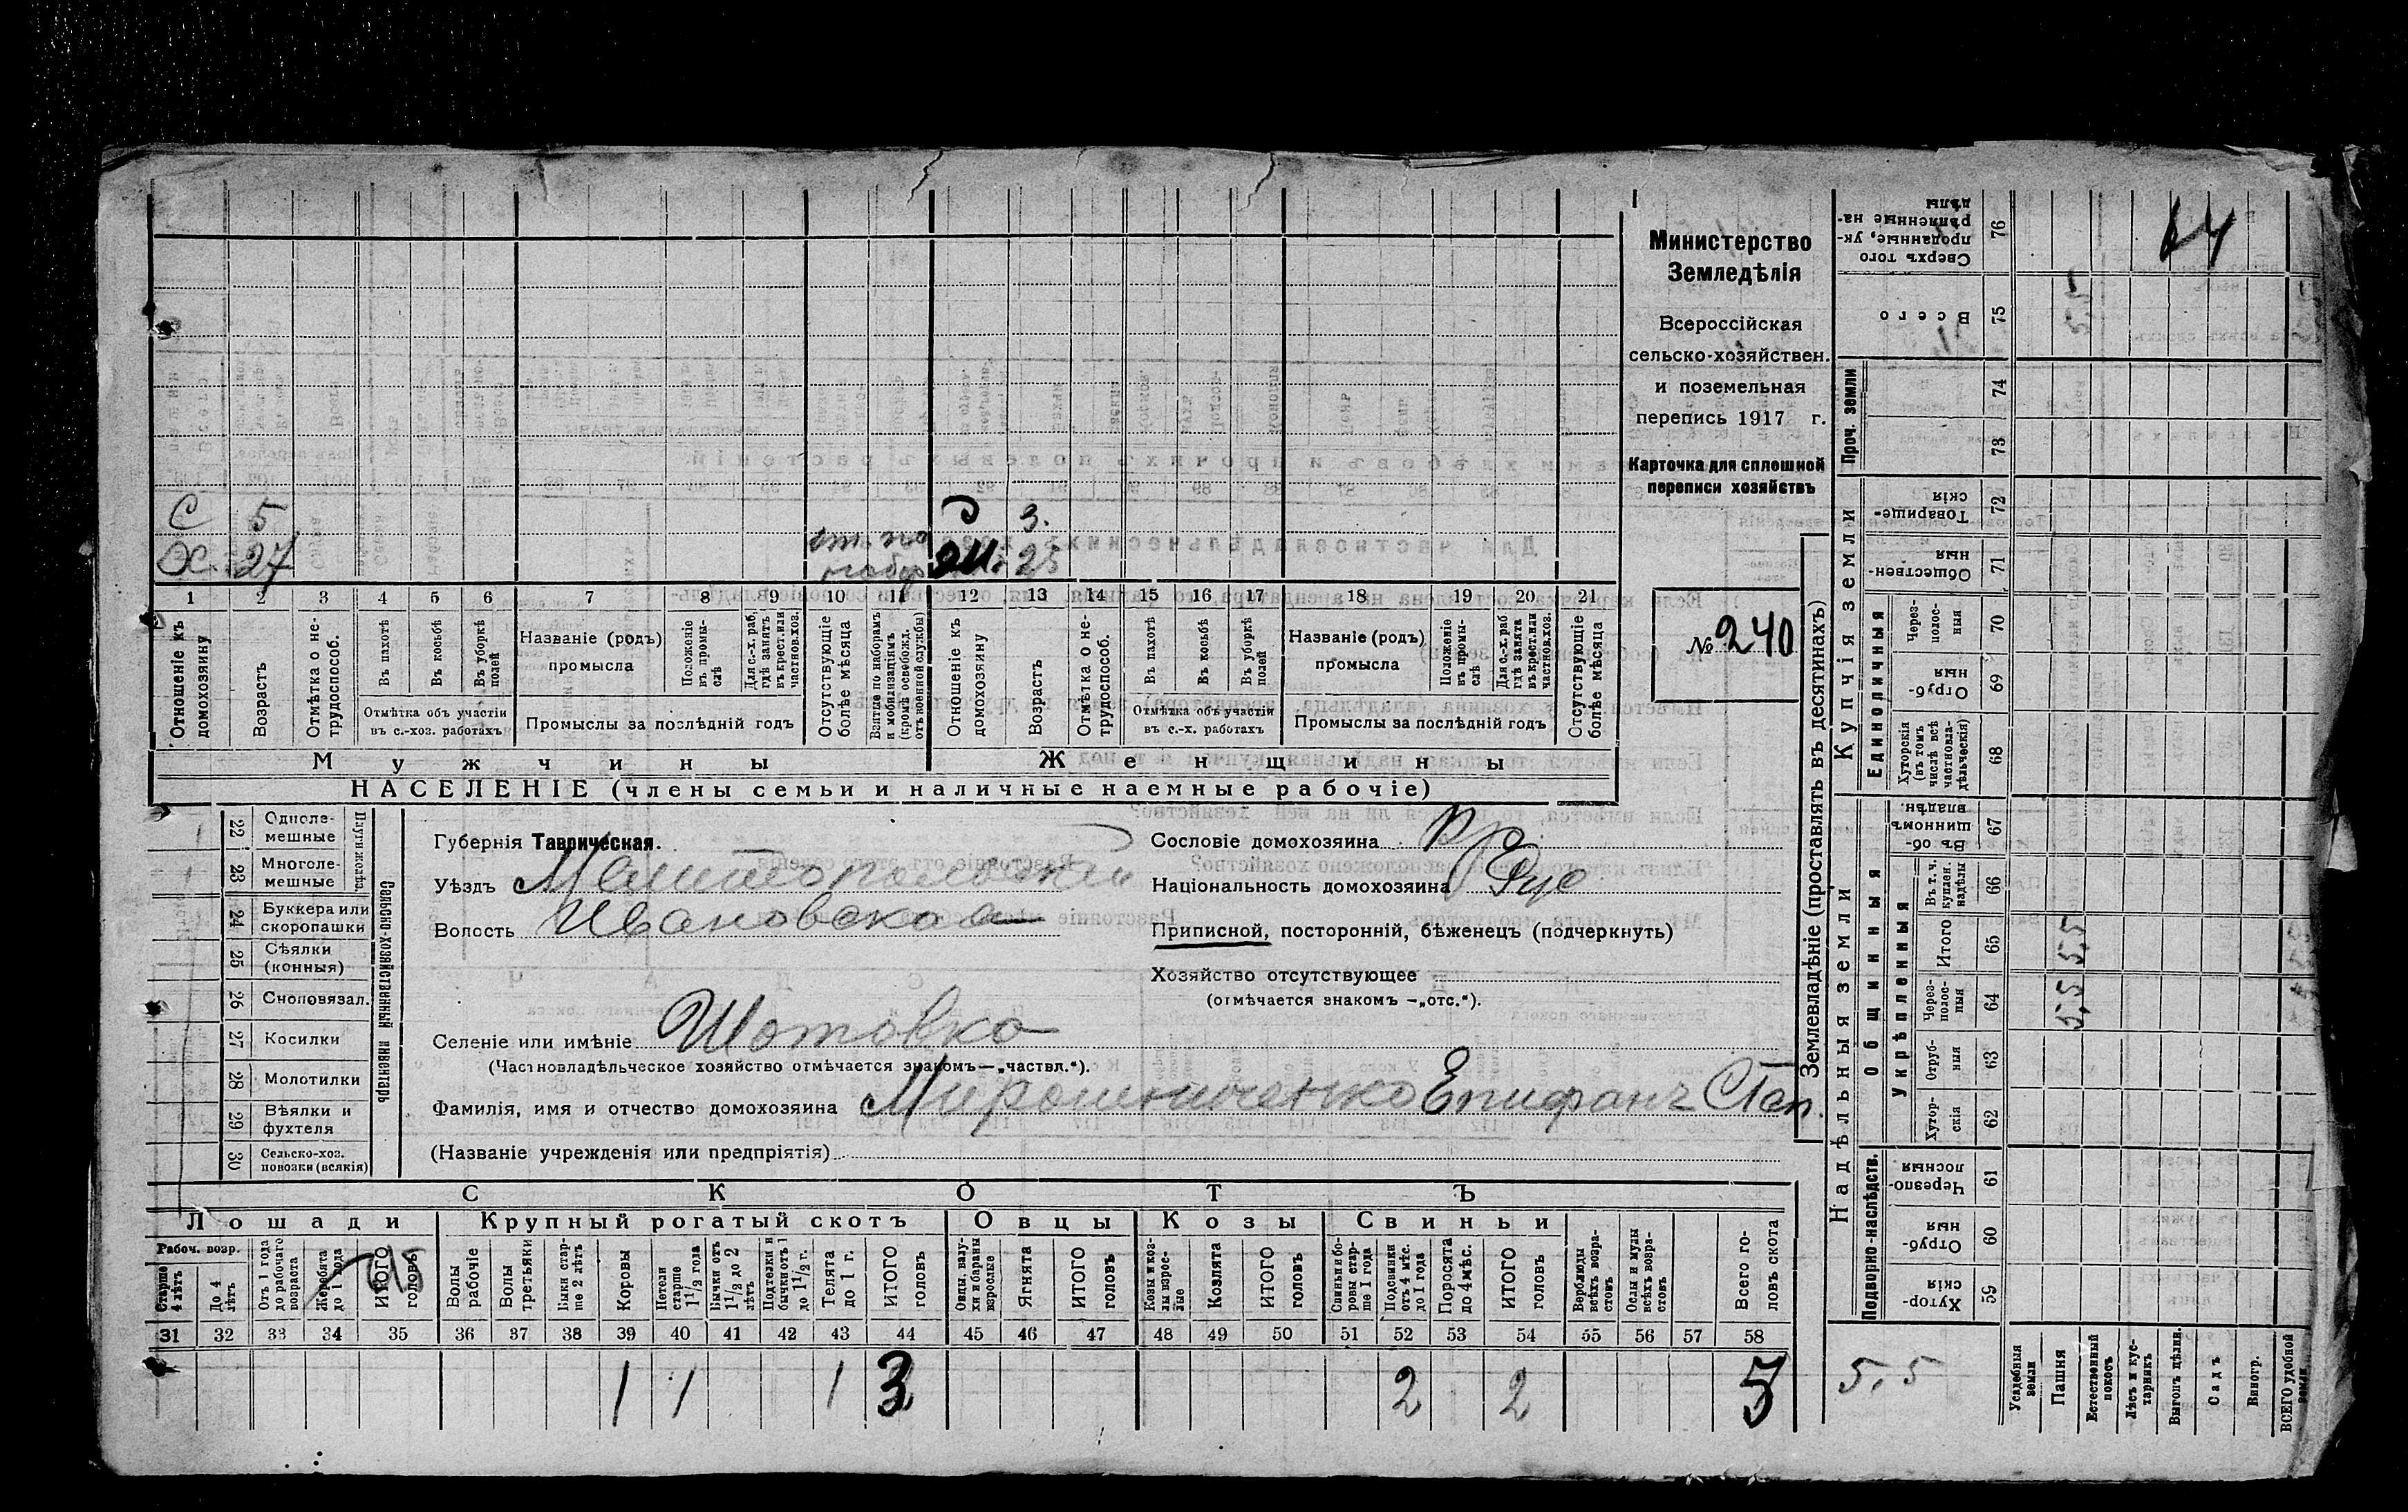 С 5 Э 3.
Х. 27 Ж. 25
1 2 3 4 5 6 7 8 9 10 11 12 13 14 15 16 17 18 19 20 21
Отношеніе къ домохозяину
Возрастъ
Отмѣтка о нетрудоспособ.
Въ пахотѣ
Въ косьбѣ
Въ уборкѣ полей
Отмѣтка объ участіи въ с.-хоз. работахъ
Названіе (родъ) промысла
Положеніе въ промыслѣ
Для с.-х. раб. гдѣ занятъ въ крест. или частнов.хоз.
Промыслы за послѣдній годъ
Отсутствующіе болѣе мѣсяца
Взятые по наборамъ и мобилизаціямъ (кромѣ освобожд. отъ военной службы)
Отношеніе къ домохозяину
Возрастъ
Отмѣтка о нетрудоспособ.
Въ пахотѣ
Въ косьбѣ
Въ уборкѣ полей
Отмѣтка объ участіи въ с.-х. работахъ
Названіе (родъ) промысла
Положеніе въ промыслѣ
Для с.-х. раб гдѣ занята въ крест. или частнов.хоз.
Промыслы за послѣдній годъ
Отсутствующіе болѣе мѣсяца
Мужчины
Женщины
НАСЕЛЕНІЕ (члены семьи и наличные наемные рабочіе)
Министерство
Земледѣлія
Всероссійская
сельско-хозяйствен.
и поземельная
перепись 1917 г.
Карточка для сплошной
переписи хозяйствъ
№ 240
22 Однолемешные
23 Многолемешные
Плуги желѣз.
24 Буккера или скоропашки
25 Сѣялки (конныя)
26 Сноповязал.
27 Косилки
28 Молотилки
29 Вѣялки и фухтеля
30 Сельско-хоз. повозки (всякія)
Сельско-хозяйственный инвентарь
Губернія Таврическая.
Уѣздъ Мелитопольский
Волость Ивановская
Селеніе или имѣніе Шотовка
(Частновладѣльческое хозяйство отмѣчается знакомъ—„частвл.“).
Фамилія, имя и отчество домохозяина Мирошниченко Епифанъ Степ.
(Названіе учрежденія или предпріятія)
Сословіе домохозяина Кр.
Національность домохозяина Рус
Приписной, посторонній, бѣженецъ (подчеркнуть)
Хозяйство отсутствующее
(отмѣчается знакомъ —„отс.“).
СКОТЪ
Лошади
Крупный рогатый скотъ
Овцы
Козы
Свиньи
Рабоч. возр.
Старше 4 лѣтъ
До 4 лѣтъ
Отъ 1 года до рабочаго возраста
Жеребята до 1 года
ИТОГО головъ
Волы рабочіе
Волы третьяки
Быки старше 2 лѣтъ
Коровы
Нетели старше 1 1/2 года
Бычки отъ 1 1/2 до 2 лѣтъ
Подтелки и бычки отъ 1 до 1 1/2 г.
Телята до 1 г.
ИТОГО головъ
Овцы, валухи и бараны взрослые
Ягнята
ИТОГО головъ
Козы и козлы взрослые
Козлята
ИТОГО головъ
Свиньи и боровы старше 1 года
Подсвинки отъ 4 мѣс. до 1 года
Поросята до 4 мѣс.
ИТОГО головъ
Верблюды всѣхъ возрастовъ
Ослы и мулы всѣхъ возрастовъ
Всего головъ скота
31 32 33 34 35 36 37 38 39 40 41 42 43 44 45 46 47 48 49 50 51 52 53 54 55 56 57 58
1 1 1 3 2 2 5
Землевладѣніе (проставлять въ десятинахъ)
Надѣльныя земли
Купчія земли
Проч. земли
Подворно-наслѣдств.
Общинныя
Укрѣпленныя
Единоличныя
Сверхъ того проданные, укрѣпленные надѣлы 76
Всего 75 5,5
74
73
Товарищескія 72
Общественныя 71
Черезполосныя 70
Отрубныя 69
Хуторскія (въ томъ числѣ всѣ частновладѣльческія) 68
Въ общинномъ владѣн. 67
Въ т. ч. куплен. надѣлы 66
Итого 65 5,5
Черезполосныя 64 5,5
Отрубныя 63
Хуторскія 62
Черезполосныя 61
Отрубныя 60
Хуторскія 59
5,5
Усадебныя земли
Пашня
Естественный покосъ
Лѣсъ и кустарникъ
Выгонъ цѣлин.
Садъ
Виногр.
ВСЕГО удобной земли